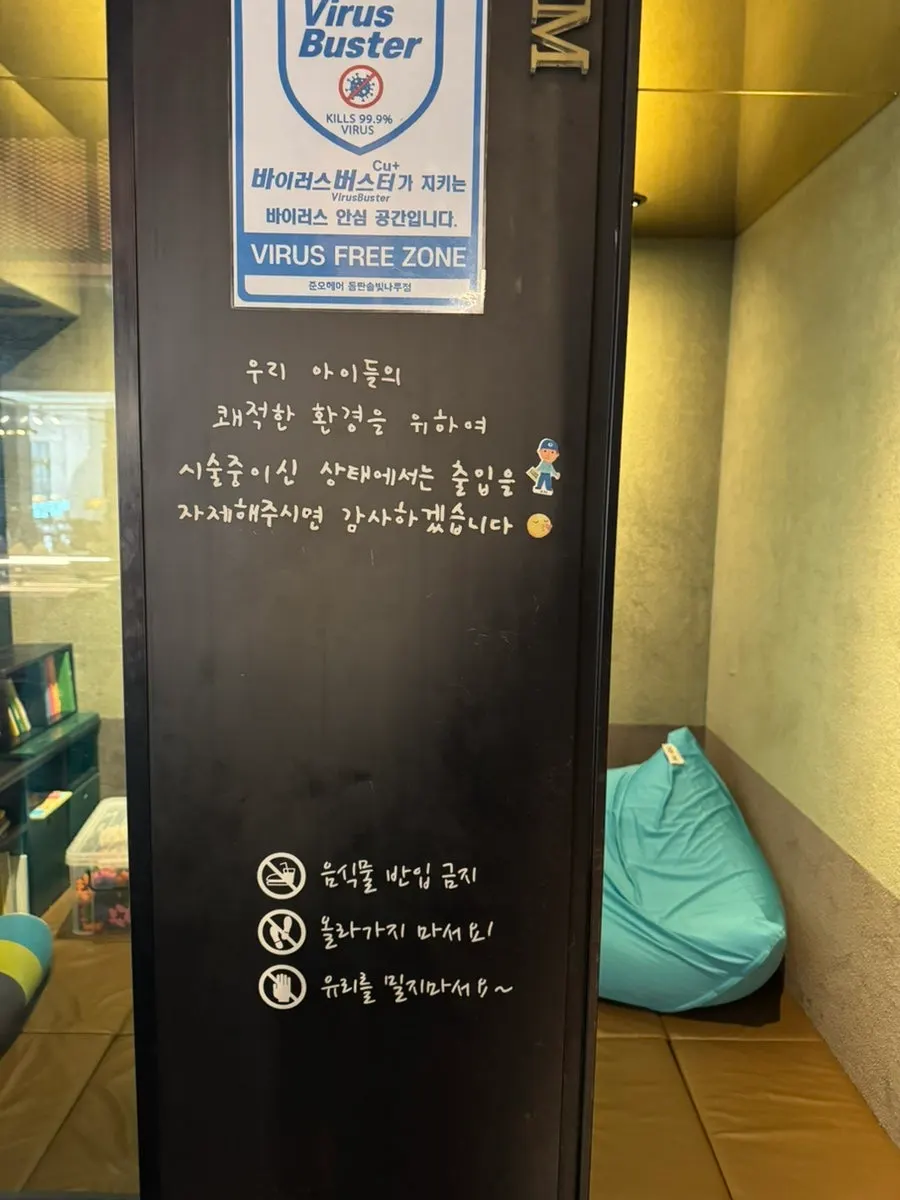 Virus
Buster
KILLS 99.9%
VIRUS
Cu+
바이러스버스터가 지키는
VirusBuster
바이러스 안심 공간입니다.
VIRUS FREE ZONE
준오헤어 동탄솔빛나루점
M
우리 아이들의
쾌적한 환경을 위하여
시술중이신 상태에서는 출입을
자제해주시면 감사하겠습니다
음식물 반입 금지
올라가지 마세요!
유리를 밀지마세요~